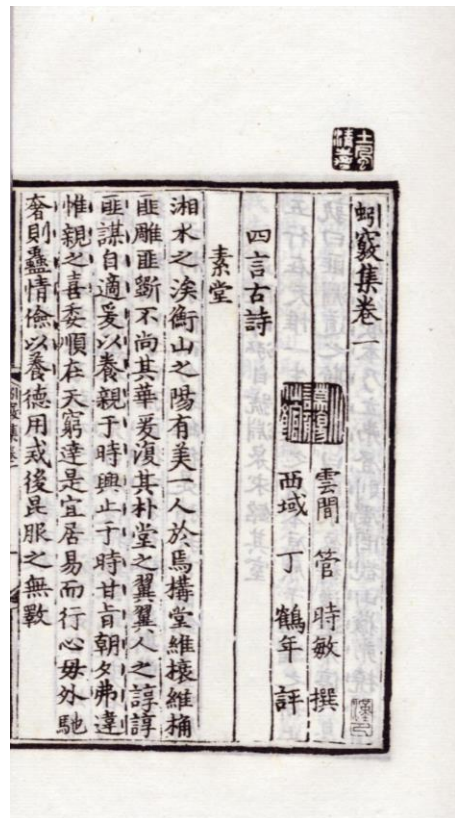 蚓竅集卷一
雲間 管 時敏 撰
西域 丁 鶴年 評
四言古詩
素堂
湘水之涘衡山之陽有美一人於焉搆堂維榱維桷
匪雕匪斲不尚其華爰復其朴堂之翼翼人之諄諄
匪謀自適爰以養親于時興止于時甘旨朝夕弗違
惟親之喜委順在天窮達是宜居易而行心毋外馳
奢則蠱情儉以養德用戒後昆服之無斁